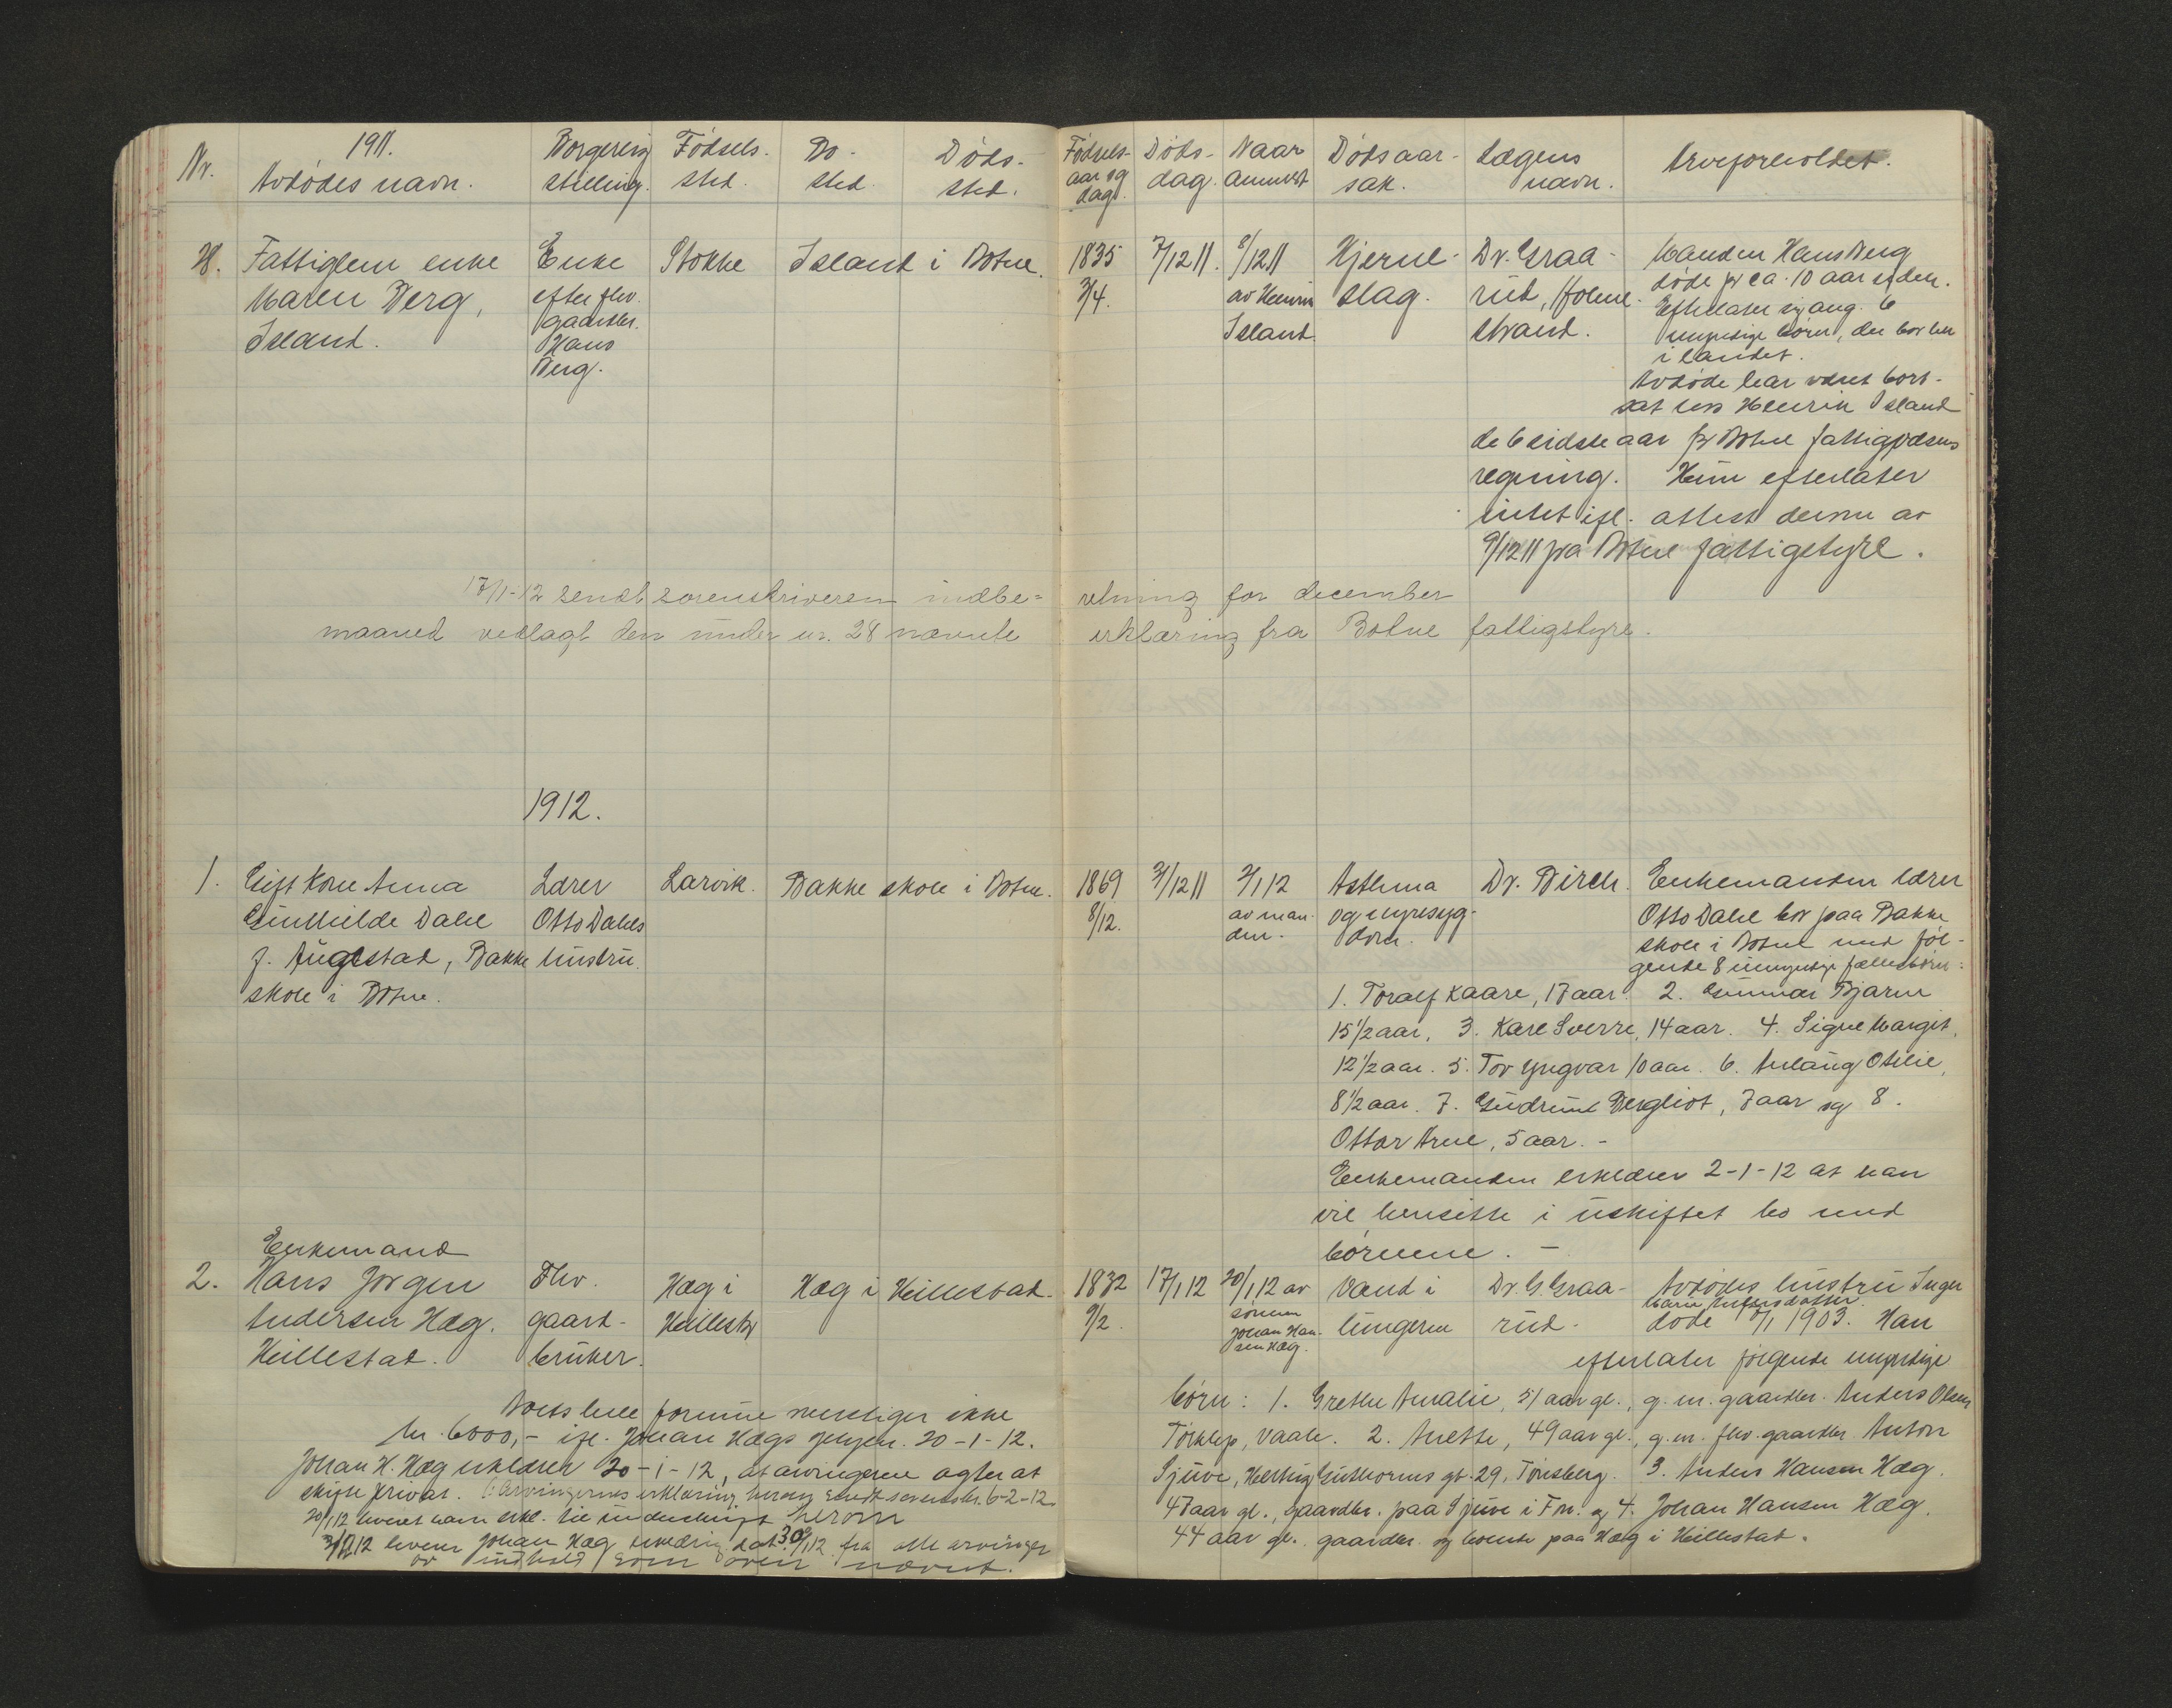 Nr.
1911.
Avdødes navn.
Borgerlig
stilling.
Fødsels-
sted.
Bo-
sted.
Døds-
sted.
Fødsels-
aar og
dag.
Døds-
dag.
Naar
anmeldt
Dødsaar-
sak.
Lægens
navn.
Arveforholdet.
28.
Fattiglem enke
Maren Berg,
Island.
Enke
efter fhv.
gaardbr.
Hans
Berg.
Stokke
Island i Botne.
1835
2/4.
7/12 11.
8/12 11
av Henrik
Island.
Hjerne-
slag.
Dr. Graa-
rud, Holme-
strand.
Manden Hans Berg
døde for ca. 10 aar siden.
Efterlater sig ang. 6
umyndige børn, der bor her
i landet.
Avdøde har været bort-
sat hos Henrik Island
de 6 sidste aar for Botne fattigvæsens
regning. Hun efterlater
intet ifl. attest derom av
9/12 11 fra Botne fattigstyre.
17/1-12 sendt sorenskriveren indbe=
retning for december
maaned vedlagt den under nr. 28 nævnte
erklæring fra Botne fattigstyre.
1912.
1.
Gift kone Anna
Gunhilde Dahl
f. Augestad, Bakke
skole i Botne.
Lærer
Otto Dahls
hustru.
Larvik.
Bakke skole i Botne.
1869
8/12.
31/12 11
2/1 12
av man-
den.
Asthma
og nyresyg-
dom.
Dr. Birch.
Enkemanden lærer
Otto Dahl bor paa Bakke
skole i Botne med føl-
gende 8 umyndige fællesbørn:
1. Toralf Kaare, 17 aar. 2. Gunnar Bjarne
15 1/2 aar, 3. Karl Sverre, 14 aar. 4. Signe Margit,
12 1/2 aar. 5. Tor Yngvar 10 aar. 6. Aslaug Otilie,
8 1/2 aar. 7. Gudrun Bergliot, 7 aar og 8.
Ottar Arne, 5 aar. -
Enkemanden erklærer 2-1-12 at han
vil hensitte i uskiftet bo med
børnene. -
2.
Enkemand
Hans Jørgen
Andersen Hæg.
Hillestad.
Fhv.
gaard-
bruker.
Hæg i
Hillestad
Hæg i Hillestad.
1832
9/2.
17/1 12
20/1 12 av
sønnen
Johan Han-
sen Hæg.
Vand i
lungerne
Dr. G. Graa-
rud.
Avdødes hustru Inger
Marie Andersdatter
døde /1 1903. Han
efterlater følgende myndige
børn: 1. Grethe Amalie, 51 aar gl., g. m. gaardbr. Anders Olsen
Torklep, Vaale. 2. Anette, 49 aar gl., g. m. fhv. gaardbr. Anton
Sjuve, Hertug Guthorms gt. 29, Tønsberg. 3. Anders Hansen Hæg.
47 aar gl., gaardbr. paa Sjuve i Fon. og 4. Johan Hansen Hæg.
44 aar gl. gaardbr. og boende paa Hæg i Hillestad.
Boets hele formue overstiger ikke
kr. 6000,- ifl. Johan Hægs 20-1-12.
Johan H. Hæg erklærer 20-1-12, at arvingerne agter at
skifte privat. Arvingernes erklæring herom sendt sorenskr. 6-2-12.
20/1 12 leveret ham erkl. til underskrift herom
3/2 12 leverer Johan Hæg erklæring dat. 30/1 12 fra alle arvinger
av indhold som oven nævnt.